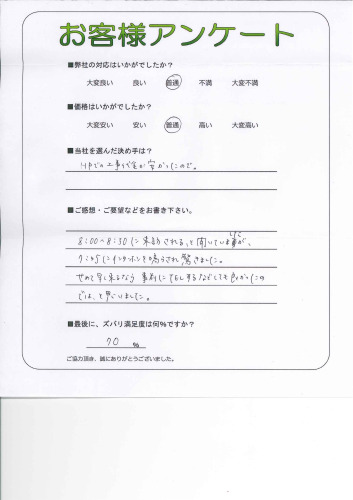 お客様アンケート
■弊社の対応はいかがでしたか?
大変良い 良い 普通 不満 大変不満
■価格はいかがでしたか?
大変安い 安い 普通 高い 大変高い
■当社を選んだ決め手は?
HPでの工事代金が安かったので。
■ご感想・ご要望などをお書き下さい。
8:00〜8:30に来訪されると聞いていましたが、
インターホンを鳴らされ驚きました。
せめて早く来るなら事前にTELするなどしても良かったの
では、と思いました。
■最後に、ズバリ満足度は何%ですか?
70 %
ご協力頂き、誠にありがとうございました。